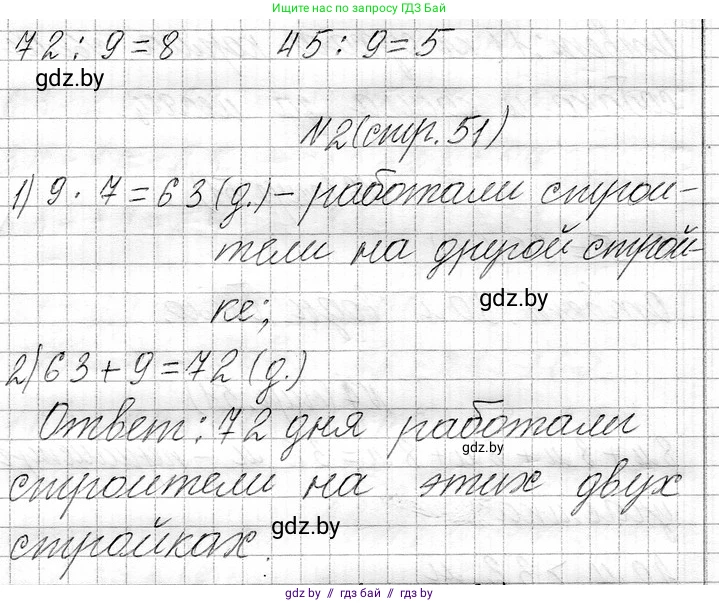 Ищите нас по запросу ГДЗ Бай
72 : 9 = 8 45 : 9 = 5
gdz.by
№2 (стр. 51)
1) 9 · 7 = 63 (д.) – работали строи-
тели на другой строй-
gdz.by
ке;
2) 63 + 9 = 72 (д.)
Ответ: 72 дня работали
gdz.by
строители на этих двух
gdz.by
стройках.
gdz.by // гдз бай // gdz.by